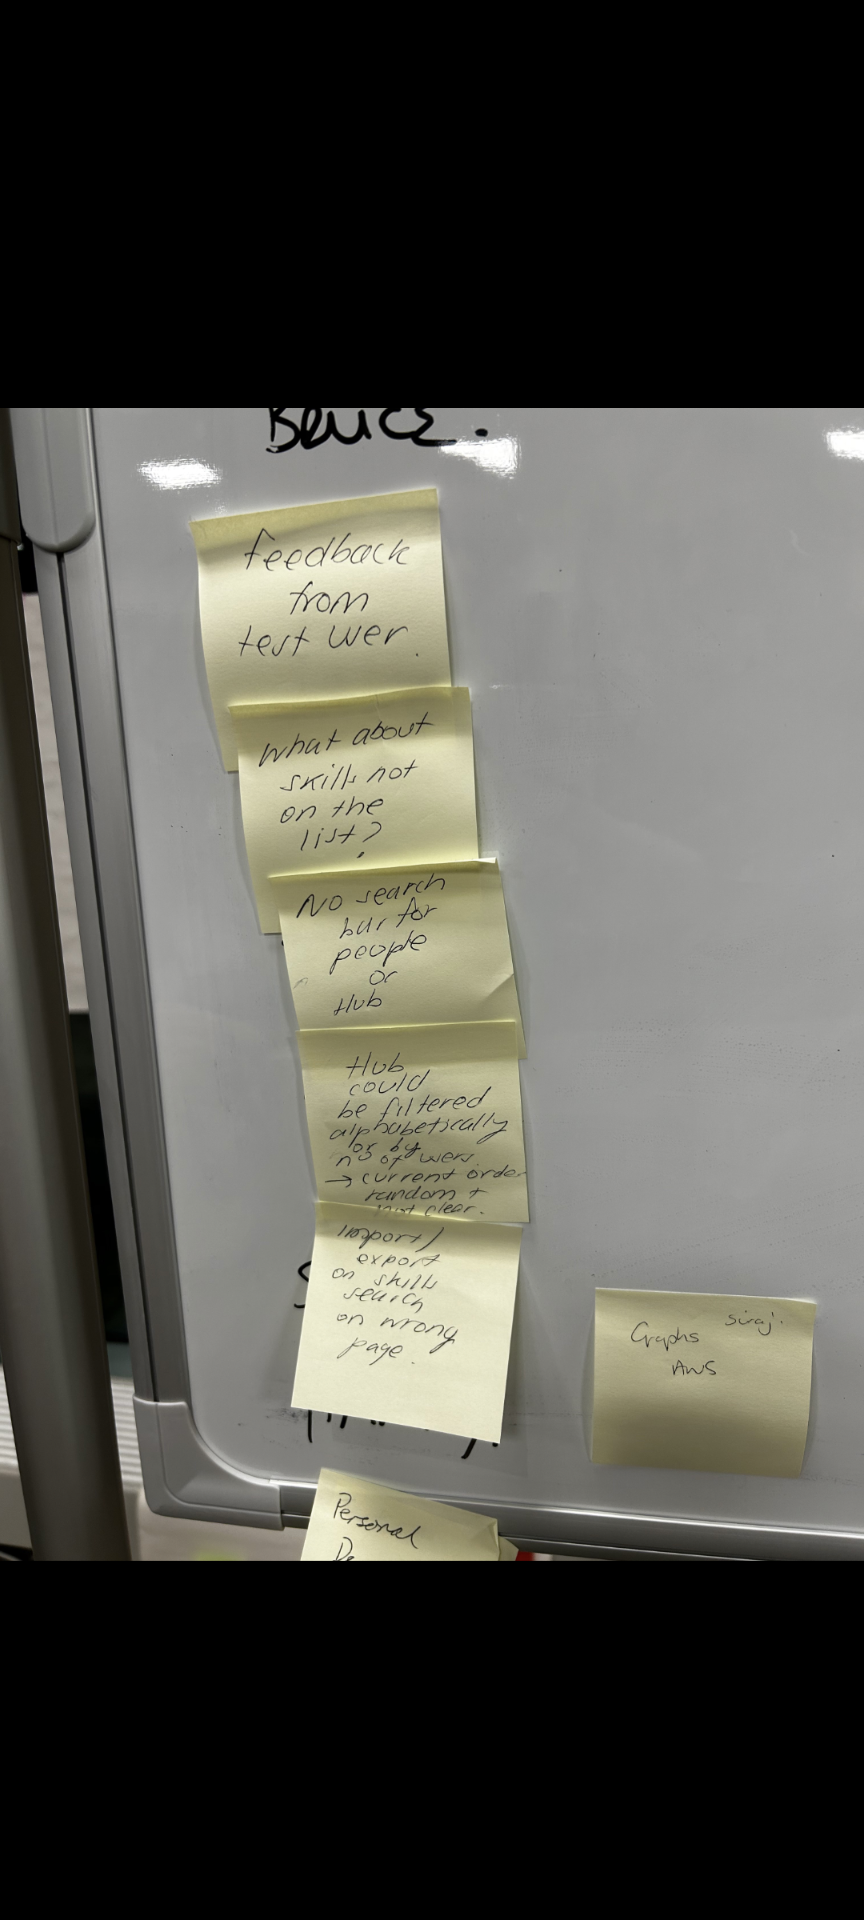 feedback
from
test user.
What about
skills not
on the
list?
No search
bar for
people
or
Hub
Hub
could
be filtered
alphabetically
or by
nº of users.
→ current order
random +
not clear.
Import/
export
on skills
search
on wrong
page.
Siraj.
Graphs
AWS
Personal